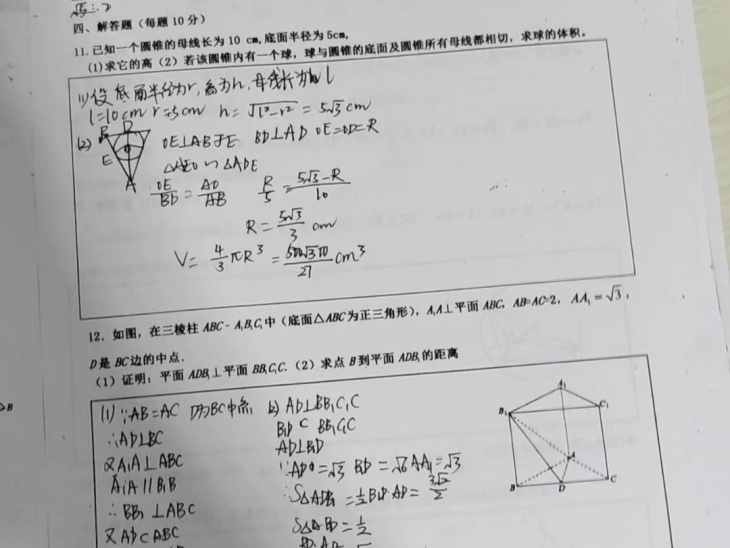 四、解答题（每题10分）
11.已知一个圆锥的母线长为10 cm,底面半径为5cm,
(1)求它的高（2）若该圆锥内有一个球，球与圆锥的底面及圆锥所有母线都相切，求球的体积。
(1)设底面半径为r,高为h,母线长为l
l=10cm r=5cm h=√(l²-r²)=5√3cm
(2) OE⊥AB于E BD⊥AD OE=OD=R
B D
O
E
A
△AEO∽△ADB
OE/BD=AO/AB R/5=(5√3-R)/10
R=5√3/3 cm
V=4/3πR³=500√3π/27cm³
12. 如图，在三棱柱ABC-A₁B₁C₁中（底面△ABC为正三角形），A₁A⊥平面ABC，AB=AC=2，AA₁=√3，
D是BC边的中点.
(1）证明：平面ADB₁⊥平面BB₁C₁C.（2）求点B到平面ADB₁的距离
(1) ∵AB=AC D为BC中点
∴AD⊥BC
又A₁A⊥ABC
A₁A∥B₁B
∴BB₁⊥ABC
又AD⊂ABC
2) AD⊥BB₁C₁C
B₁D⊂BB₁C₁C
AD⊥B₁D
∵AD=√3 BD=√6 AA₁=√3
∴S△ADB₁=1/2B₁D·AD=3√2/2
S△ABD=1/2
BD·AD
A₁
B₁ C₁
A
B D C
B